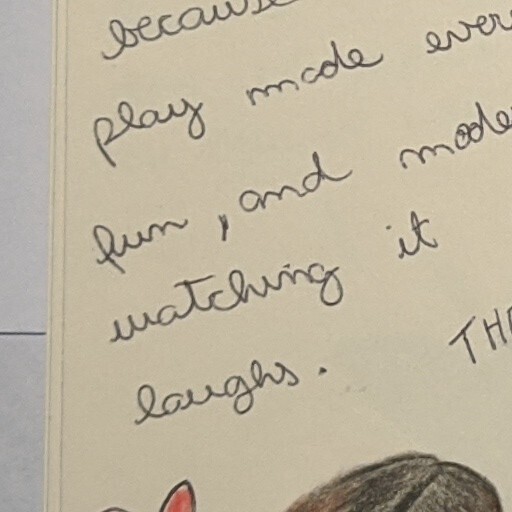 because
play made ever
fun, and made
watching it
laughs. TH